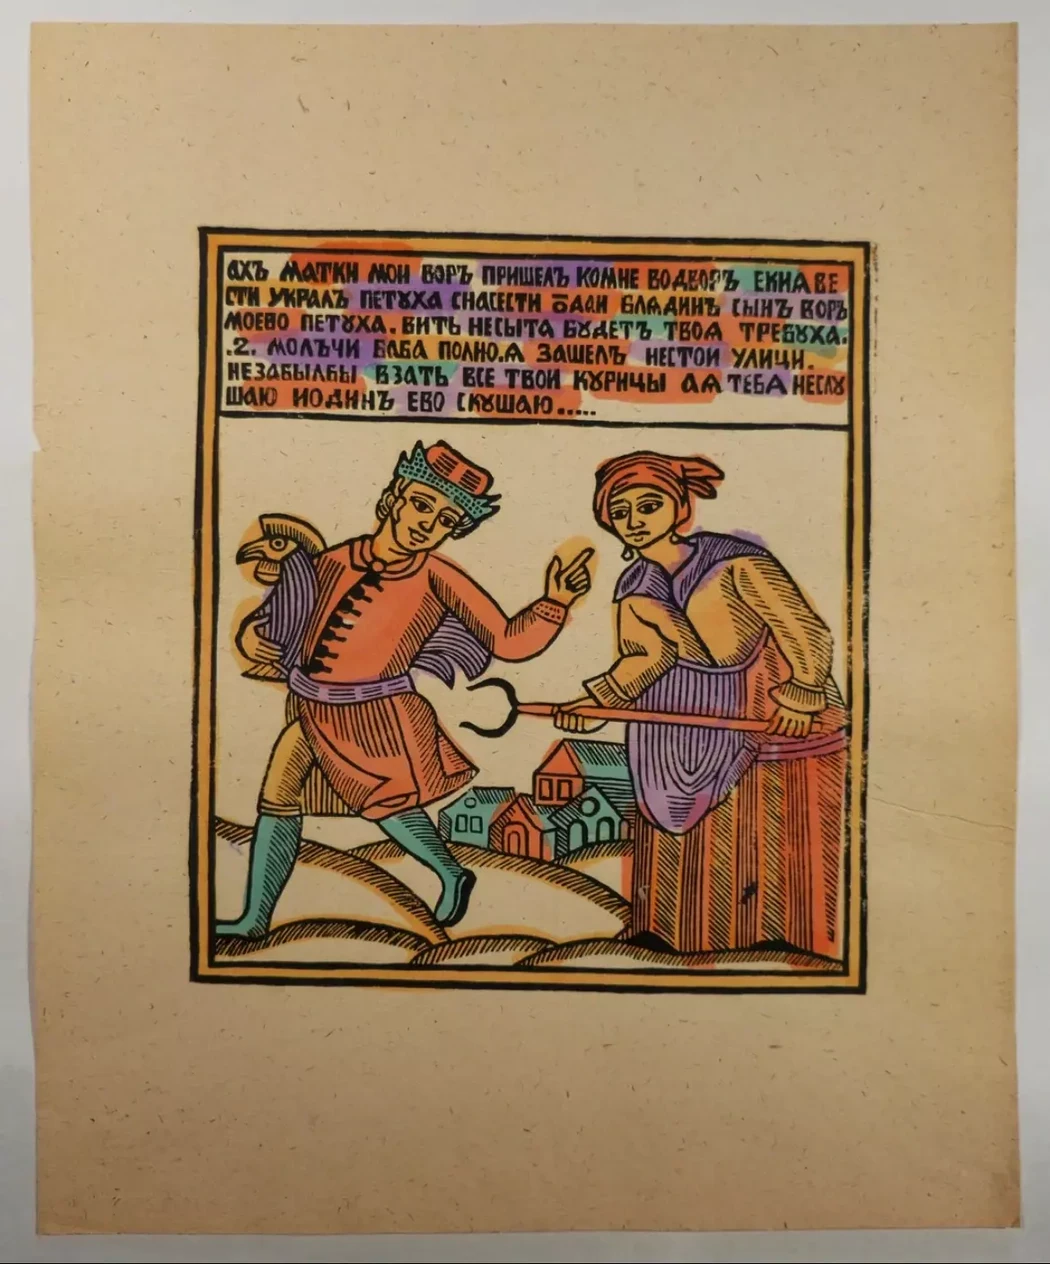 АХЪ МАТКИ МОИ ВОРЪ ПРИШЕЛЪ КОМНЕ ВОДВОРЪ ЕКИАВЕ
СТИ УКРАЛЪ ПЕТꙋХА СНАСЕСТИ ѾДАИ БЛѦДИНЪ СЫНЪ ВОРЪ
МОЕВО ПЕТꙋХА. ВИТЬ НЕСЫТА БꙋДЕТЪ ТВОѦ ТРЕБꙋХА.
.2. МОЛЪЧИ БАБА ПОЛНО.Ѧ ЗАШЕЛЪ НЕСТОИ УЛИЦИ.
НЕЗАБЫЛБЫ ВЗАТЬ ВСЕ ТВОИ КꙋРИЦЫ АѦ ТЕБА НЕСЛꙋ
ШАЮ ИОДИНЪ ЕВО СКꙋШАЮ.....